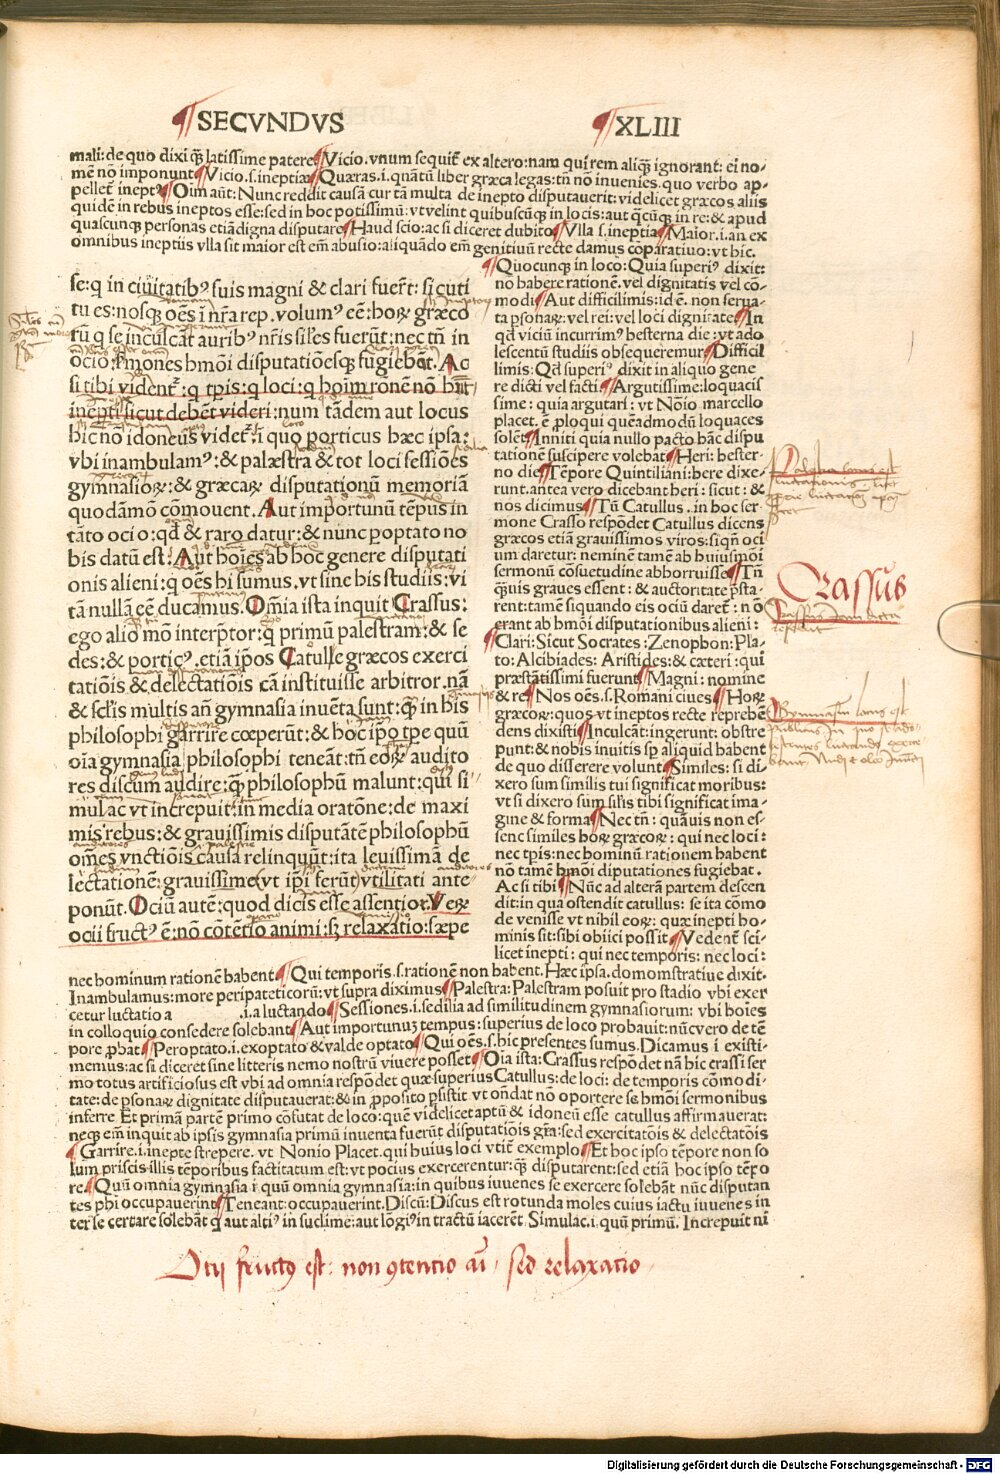 SECVNDVS XLIII
mali: de quo dixi q̃ latissime patere ¶ Vicio. vnum sequit̃ ex altero: nam qui rem aliq̃ ignorant: ei no-
mẽ nõ imponunt ¶ Vicio. s. ineptiæ ¶ Quæras. i. quãtũ liber græca legas: tñ nõ inuenies. quo verbo ap-
pellet̃ inept⁹ ¶ Oim aũt: Nunc reddit causã cur tã multa de inepto disputauerit: videlicet græcos aliis
quidẽ in rebus ineptos esse: sed in hoc potissimũ: vt velint quibuscũq; in locis: aut q̃cũq; in re: & apud
quascunq; personas etiã digna disputare ¶ Haud scio: ac si diceret dubito ¶ Vlla s. ineptia ¶ Maior. i. an ex
omnibus ineptiis vlla sit maior est em̃ abusio: aliquãdo em̃ genitiuũ recte damus cõparatiuo: vt hic.
se: q in ciuitatib⁹ suis magni & clari fuer̃t: si cuti
tu es: nosq; oẽs ĩ nr̃a rep. volum⁹ eẽ: hoꝝ græco
rũ q se inculcãt aurib⁹ nr̃is siles fuerũt: nec tñ in
ocio s̃mones hm̃oi disputatiõesq; fugiebãt. Ac
si tibi vident̃: q tp̃is: q loci: q hoĩm rõnẽ nõ hñt
inepti sicut debẽt videri: num tãdem aut locus
hic nõ idoneus videt̃: ĩ quo porticus hæc ipsa:
vbi inambulam⁹: & palæstra & tot loci sessiões
gymnasioꝝ: & græcaꝝ disputationũ memoriã
quodãmõ cõmouent. Aut importunũ tẽpus in
tãto ocio: qđ & raro datur: & nunc poptato no
bis datũ est? Aut hoĩes ab hoc genere disputati
onis alieni: q oẽs hi sumus. vt sine his studiis: vi
tã nullã eẽ ducamus. Om̃ia ista inquit Crassus:
ego alio mõ interp̃tor: q primũ palestram: & se
des: & portic⁹. etiã ip̃os Catulle græcos exerci
tatiõis & delectatiõis cã instituisse arbitror. nã
& sclis multis añ gymnasia inuẽta sunt: q̃ in his
philosophi garrire cœperũt: & hoc ip̃o tp̃e quũ
oĩa gymnasia philosophi teneãt: tñ eoꝝ audito
res discum audire: q̃ philosophũ malunt: qui si
mul ac vt increpuit: in media oratõne: de maxi
mis rebus: & grauissimis disputãtẽ philosophũ
om̃es vnctiõis causa relinquũt: ita leuissimã de
lectationẽ: grauissime (vt ip̃i ferũt) vtilitati ante-
ponũt. Ociũ autẽ: quod dicis esse assentior. Veꝝ
ocii fruct⁹ ẽ: nõ cõtẽtio animi: sꝫ relaxatio: sæpe
¶ Quocunq; in loco: Quia superi⁹ dixit:
no habere rationẽ. vel dignitatis vel cõ-
modi ¶ Aut difficilimis: id ẽ. non serua-
ta p̃sonaꝝ: vel rei: vel loci dignitate ¶ In
qđ viciũ incurrim⁹ hesterna die: vt ado
lescentũ studiis obsequeremur ¶ Difficil
limis: Qđ superi⁹ dixit in aliquo gene
re dicti vel facti ¶ Argutissime: loquacis
sime: quia argutari: vt Nõio marcello
placet. ẽ ploqui quẽadmodũ loquaces
solẽt ¶ Inniti quia nullo pacto hãc dispu
tationẽ suscipere volebat ¶ Heri: hester-
no die ¶ Tẽpore Quintiliani: here dixe-
runt. antea vero dicebant heri: sicut: &
nos dicimus ¶ Tũ Catullus. in hoc ser-
mone Crasso respõdet Catullus dicens
græcos etiã grauissimos viros: siqñ oci
um daretur: neminẽ tamẽ ab huiusmõi
sermonũ cõsuetudine abhorruisse ¶ Tñ
q̃uis graues essent: & auctoritate p̃sta-
rent: tamẽ siquando eis ociũ daret̃: nõ
erant ab hmõi disputationibus alieni:
¶ Clari: Sicut Socrates: Zenophon: Pla-
to: Alcibiades: Aristides: & cæteri: qui
præstãtissimi fuerunt ¶ Magni: nomine
& re ¶ Nos oẽs. s. Romani ciues ¶ Hoꝝ
græcoꝝ: quos vt ineptos recte reprehẽ
dens dixisti ¶ Inculcãt: ingerunt: obstre
punt: & nobis inuitis sp̃ aliquid habent
de quo disserere volunt ¶ Similes: si di-
xero sum similis tui significat moribus:
vt si dixero sum sil̃is tibi significat ima-
gine & forma ¶ Nec tñ: quãuis non es-
senc similes hoꝝ græcoꝝ: qui nec loci:
nec tp̃is: nec hominũ rationem habent
nõ tamẽ hmõi diputationes fugiebãt.
Ac si tibi ¶ Nũc ad alterã partem descen
dit: in qua ostendit catullus: se ita cõmo
de venisse vt nihil eoꝝ: quæ inepti ho-
minis sit: sibi obiici possit ¶ Vedent̃ sci-
licet inepti: qui nec temporis: nec loci:
nec hominum rationẽ habent ¶ Qui temporis. s. rationẽ non habent. Hæc ipsa. domomstratiue dixit.
Inambulamus: more peripateticorũ: vt supra diximus ¶ Palestra: Palestram posuit pro stadio vbi exer
cetur luctatio a .i. a luctando ¶ Sessiones. i. sedilia ad similitudinem gymnasiorum: vbi hoĩes
in colloquio consedere solebant ¶ Aut importunuꝫ tempus: superius de loco probauit: nũc vero de tẽ
pore p̃bat ¶ Peroptato. i. exoptato & valde optato ¶ Qui oẽs. s. hic presentes sumus. Dicamus ĩ existi-
memus: ac si diceret sine litteris nemo nostrũ viuere posset ¶ Oĩa ista: Crassus respõdet nã hic crassi ser
mo totus artificiosus est vbi ad omnia respõdet quæ superius Catullus: de loci: de temporis cõmodi-
tate: de p̃sonaꝝ dignitate disputauerat: & in p̃posito p̃sistit vt oñdat nõ oportere se hmõi sermonibus
inferre Et primã partẽ primo cõfutat de loco: quẽ videlicet aptũ & idoneũ esse catullus affirmauerat:
neq; em̃ inquit ab ipsis gymnasia primũ inuenta fuerũt disputatiõis gr̃a: sed exercitatõis & delectatõis
¶ Garrire. i. inepte strepere. vt Nonio Placet. qui huius loci vtit̃ exemplo ¶ Et hoc ipso tẽpore non so
lum priscis illis tẽporibus factitatum est: vt pocius exercerentur: q̃ disputarent: sed etiã hoc ipso tẽpo
re ¶ Quũ omnia gymnasia ĩ quũ omnia gymnasia: in quibus iuuenes se exercere solebãt nũc disputan
tes phi occupauerint ¶ Teneant: occupauerint. Discũ: Discus est rotunda moles cuius iactu iuuenes in
ter se certare solebãt q aut alti⁹ in suclime: aut lõgi⁹ in tractũ iacerẽt. Simulac. i. quũ primũ. Increpuit ni
Crassus
Otij fruct⁹ est: non ꝯtentio aĩ, sed relaxatio
Digitalisierung gefördert durch die Deutsche Forschungsgemeinschaft - DFG